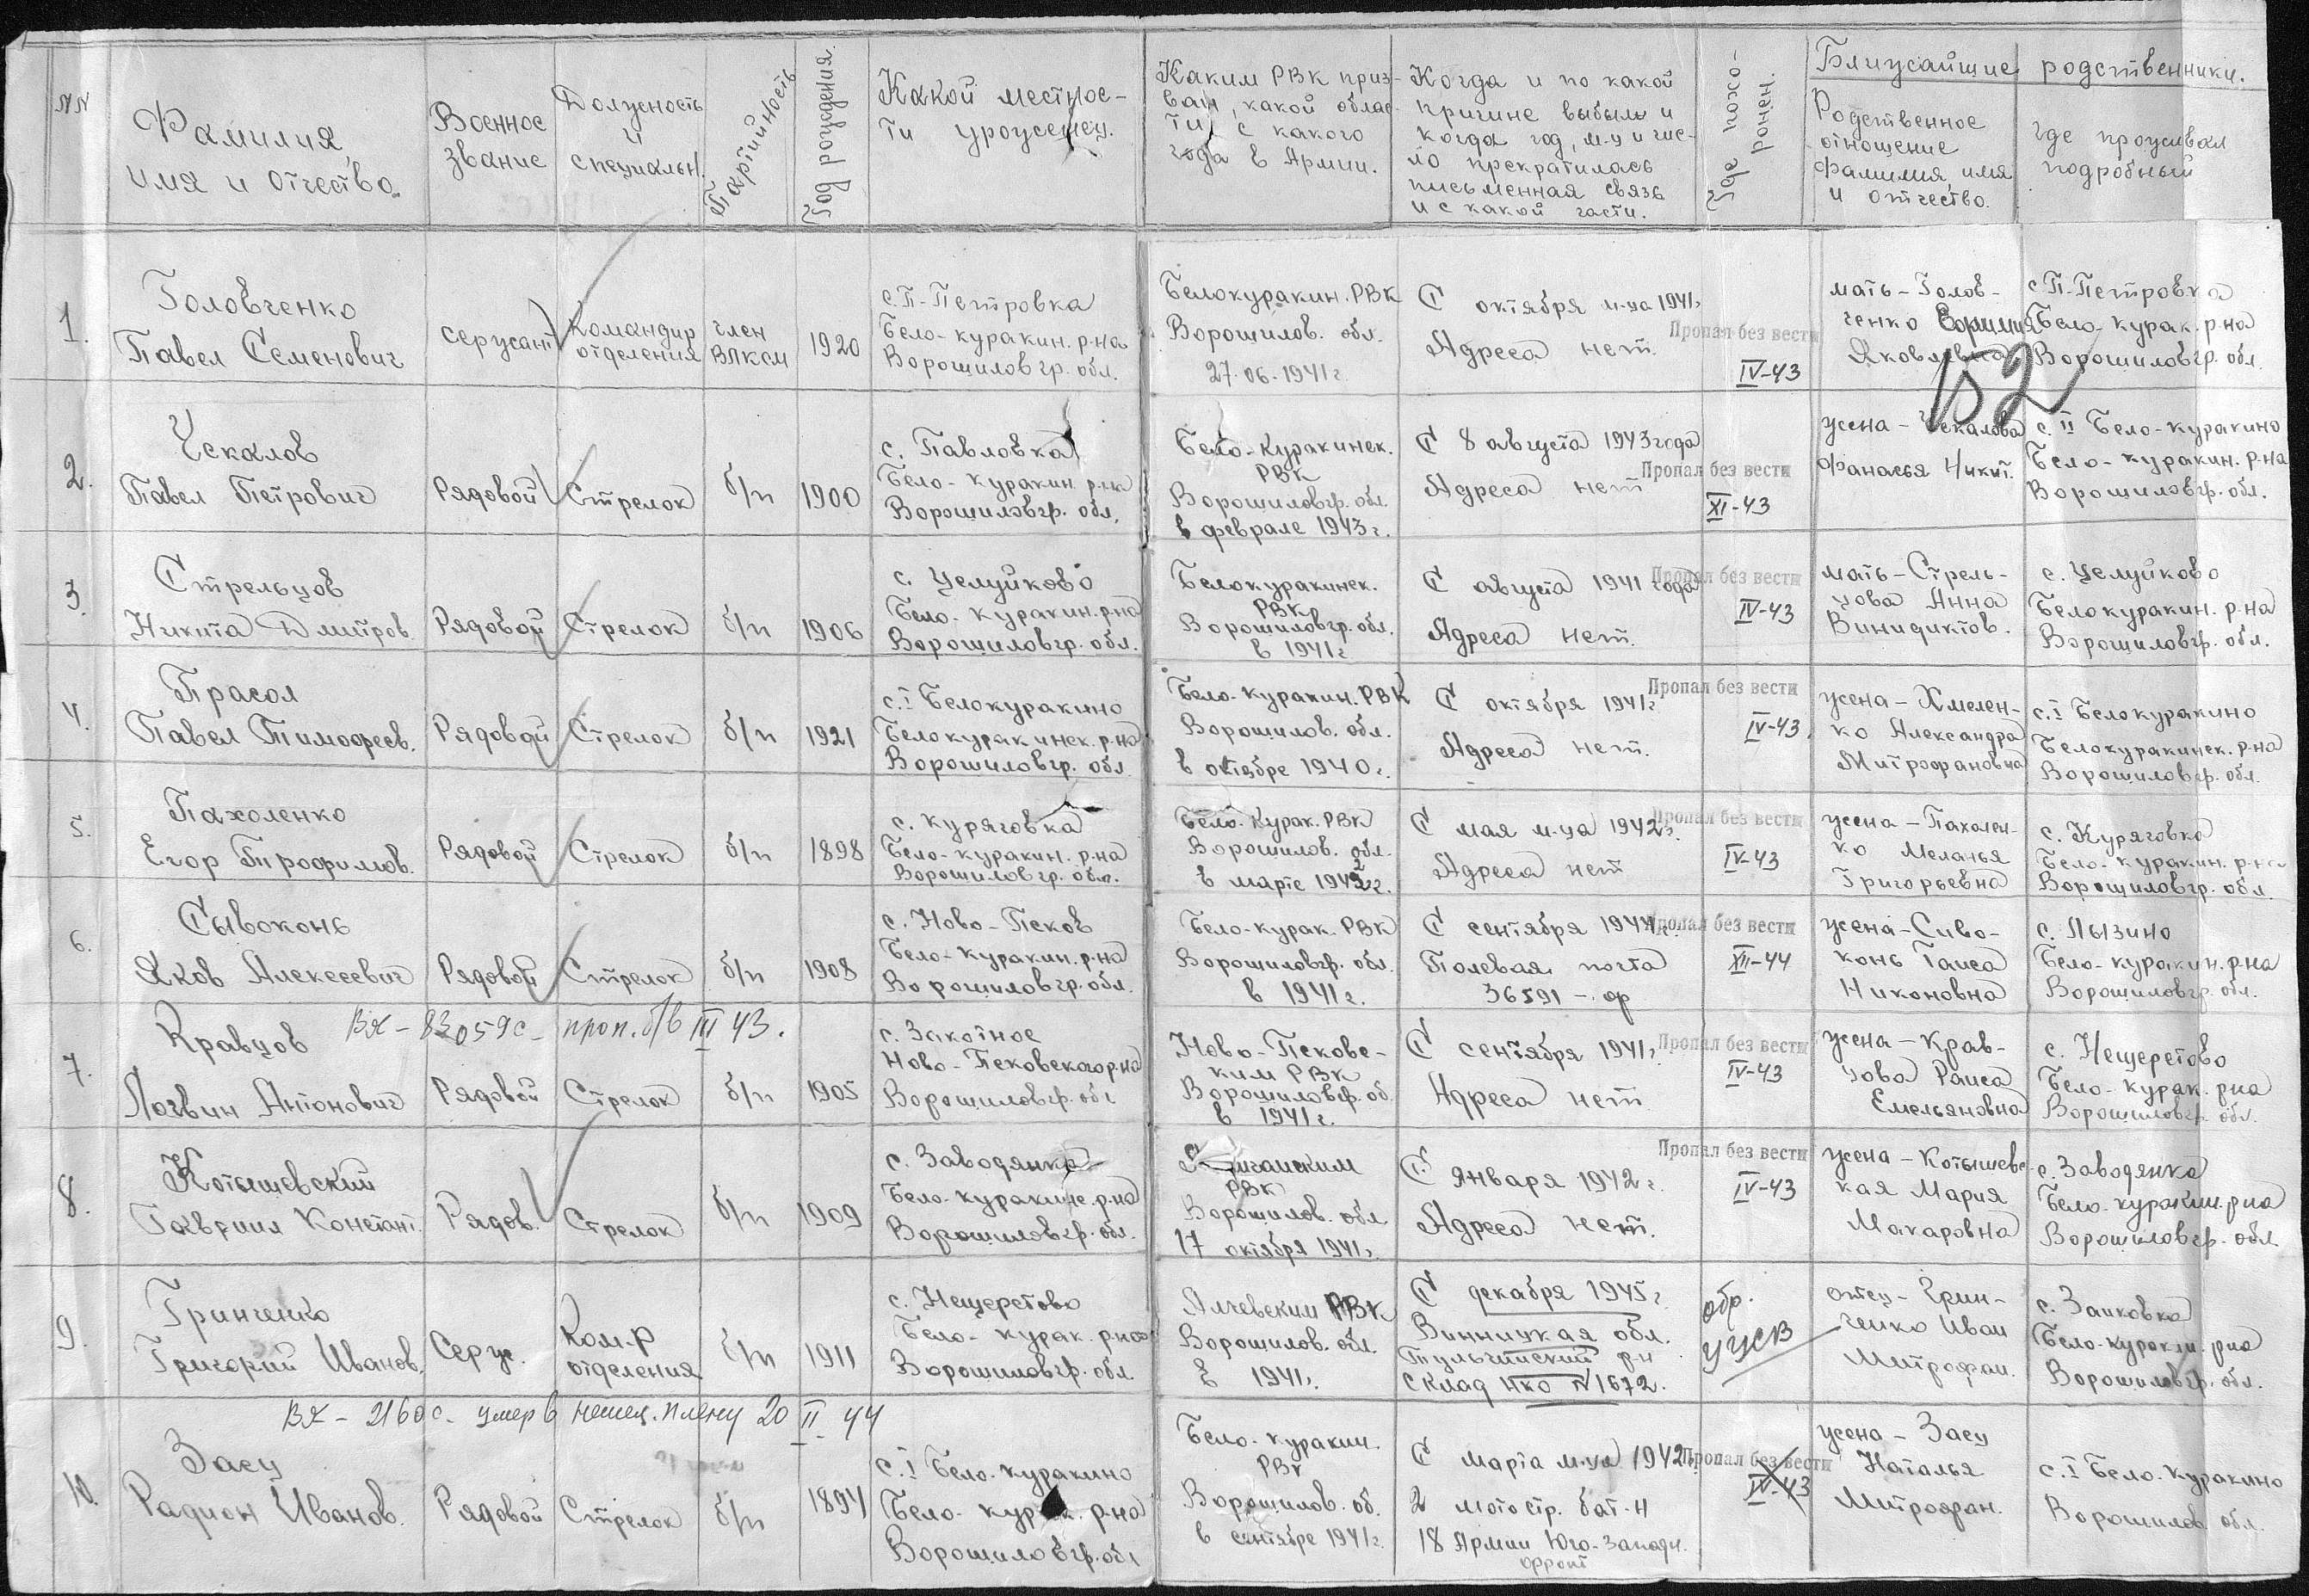 NN
Фамилия,
имя и отчество.
Военное
звание
Должность
и
специальн.
Партийность
Год рождения.
Какой местнос-
ти уроженец.
Каким РВК приз-
ван, какой облас-
ти, с какого
года в Армии.
Когда и по какой
причине выбыли и
когда год, м-ц и чис-
ло прекратилась
письменная связь
и с какой части.
Где похо-
ронен.
Ближайшие родственники.
Родственное
отношение
фамилия, имя
и отчество.
где проживал
подробный
1.
Головченко
Павел Семенович
сержант
Командир
отделения
член
ВЛКСМ
1920
с. П-Петровка
Бело-куракин. р-на
Ворошиловгр. обл.
Белокуракин. РВК
Ворошилов. обл.
27.06.1941г.
С октября м-ца 1941г.
Адреса нет.
Пропал без вести
IV-43
мать - Голов-
ченко
Яковлевна
с П-Петровка
Бело-курак. р-на
Ворошиловгр. обл.
2.
Чекалов
Павел Петрович
Рядовой
Стрелок
б/п
1900
с. Павловка
Бело-куракин. р-на
Ворошиловгр. обл.
Бело-Куракинск.
РВК
Ворошиловгр. обл.
в феврале 1943г.
С 8 августа 1943 года
Адреса нет
Пропал без вести
XI-43
жена - Чекалова
Фанасья Никит.
с. II Бело-куракино
Бело-куракин. р-на
Ворошиловгр. обл.
3.
Стрельцов
Никита Дмитров.
Рядовой
Стрелок
б/п
1906
с. Целуйково
Бело-куракин. р-на
Ворошиловгр. обл.
Белокуракинск.
РВК
Ворошиловгр. обл.
в 1941г
С августа 1941 года
Адреса нет.
Пропал без вести
IV-43
мать - Стрель-
цова Анна
Винидиктов.
с. Целуйково
Белокуракин. р-на
Ворошиловгр. обл.
4.
Прасол
Павел Тимофеев.
Рядовой
Стрелок
б/п
1921
с. I Белокуракино
Белокуракинск. р-на
Ворошиловгр. обл
Бело-Куракин. РВК
Ворошилов. обл.
в октябре 1940г.
С октября 1941г.
Адреса нет.
Пропал без вести
IV-43.
жена - Хмелен-
ко Александра
Митрофановна
с. I Белокуракино
Белокуракинск. р-на
Ворошиловгр. обл.
5.
Пахоленко
Егор Трофимов.
Рядовой
Стрелок
б/п
1898
с. Куряговка
Бело-куракин. р-на
Ворошиловгр. обл.
Бело-Курак. РВК
Ворошилов. обл.
в марте 1942г.
С мая м-ца 1942г.
Адреса нет
Пропал без вести
IV-43
жена - Пахолен-
ко Меланья
Григорьевна
с. Куряговка
Бело-куракин. р-на
Ворошиловгр. обл.
6.
Сывоконь
Яков Алексеевич
Рядовой
Стрелок
б/п
1908
с. Ново-Псков
Бело-куракин. р-на
Ворошиловгр. обл.
Бело-курак. РВК
Ворошиловгр. обл.
в 1941г.
С сентября 1944г.
Полевая почта
36591 - ф
Пропал без вести
XII-44
жена - Сиво-
конь Таиса
Никоновна
с. Лызино
Бело-куракин. р-на
Ворошиловгр. обл.
Вх - 83059с - проп. б/в III 43.
7.
Кравцов
Логвин Антонович
Рядовой
Стрелок
б/п
1905
с. Закотное
Ново-Псковского р-на
Ворошиловгр. обл
Ново-Псковс-
ким РВК
Ворошиловгр. об.
в 1941г.
С сентября 1941г.
Адреса нет
Пропал без вести
IV-43
жена - Крав-
цова Раиса
Емельяновна
с. Нещеретово
Бело-курак. р-на
Ворошиловгр. обл.
8.
Котышевский
Гавриил Констант.
Рядов.
Стрелок
б/п
1909
с. Заводянка
Бело-куракинс. р-на
Ворошиловгр. обл.
РВК
Ворошилов. обл
17 октября 1941г.
С января 1942г.
Адреса нет.
Пропал без вести
IV-43
жена - Котышевс-
кая Мария
Макаровна
с. Заводянка
Бело-куракин. р-на
Ворошиловгр. обл.
9.
Гринченко
Григорий Иванов.
Серж.
Ком-р
отделения
б/п
1911
с. Нещеретово
Бело-курак. р-на
Ворошиловгр. обл.
Алчевским РВК
Ворошилов. обл.
в 1941г.
С декабря 1945г.
Винницкая обл.
Тульчинский р-н
склад НКО N 1672.
обр.
отец - Грин-
ченко Иван
Митрофан.
с. Заиковка
Бело-куракин. р-на
Ворошиловгр. обл.
Вх - 2160с. умер в немец. плену 20 II 44
10.
Засц
Радион Иванов.
Рядовой
Стрелок
б/п
1894
с. I Бело-куракино
Бело-курак. р-на
Ворошиловгр. обл
Бело-куракин.
РВК
Ворошилов. об.
в сентябре 1941г.
С марта м-ца 1942г.
2 мотостр. бат-н
18 Армии Юго-западн.
фронт
Пропал без вести
IV-43
жена - Засц
Наталья
Митрофан.
с. I Бело-Куракино
Ворошилов обл.